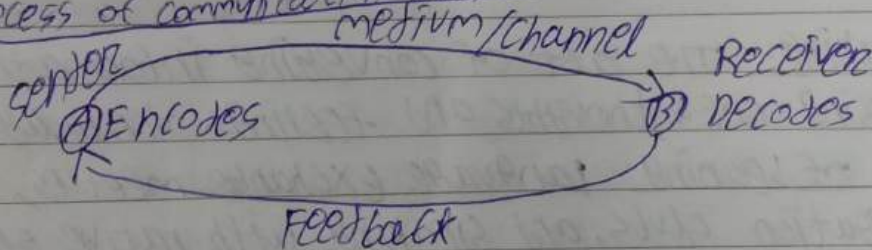 cess of communicat
medium/channel
sender
Receiver
(A) Encodes
(B) Decodes
Feedback